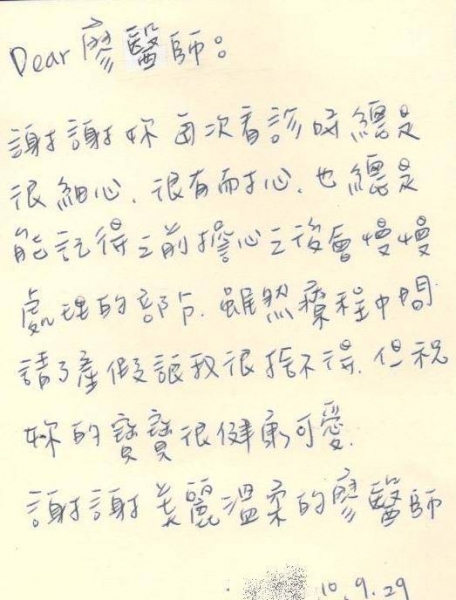 Dear 廖醫師：
謝謝妳每次看診時總是
很細心、很有耐心、也總是
能記得之前擔心之後會慢慢
處理的部分，雖然療程中間
請了產假讓我很捨不得，但祝
妳的寶寶很健康可愛．
謝謝美麗溫柔的廖醫師
10.9.29